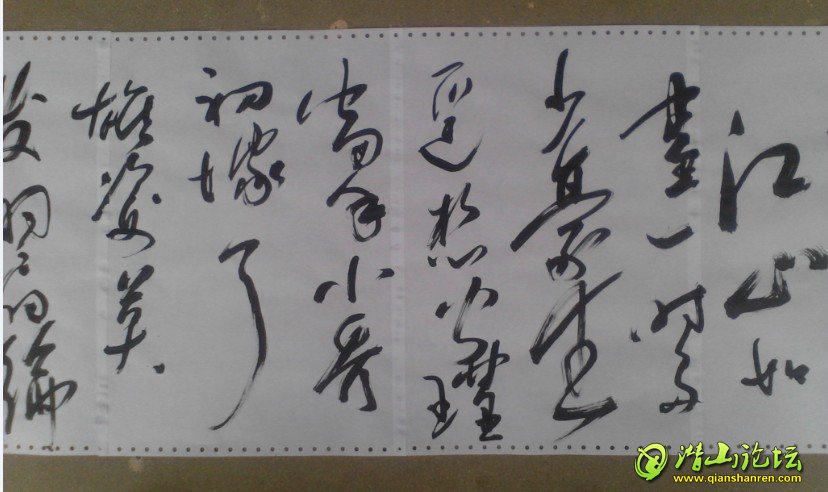 江山如
畫一时多
少豪杰
遥想公瑾
當年小乔
初嫁了
雄姿英
发羽扇纶
潜山论坛
www.qianshanren.com